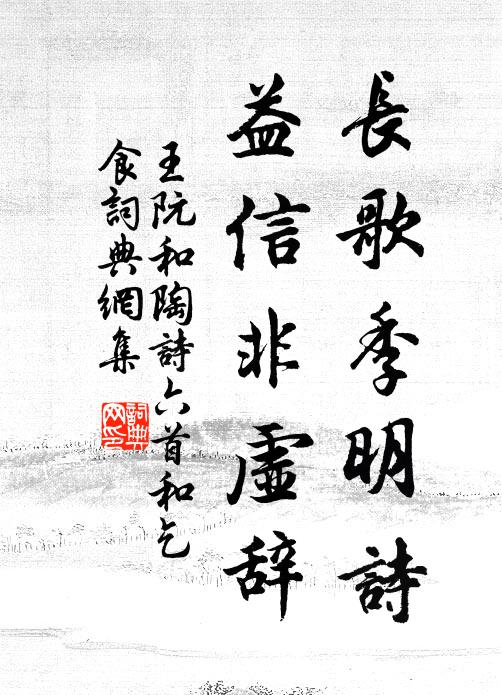 長歌季明詩
益信非虛辞
王阮和陶詩六首和乞
食詞典網集
詞典
网印